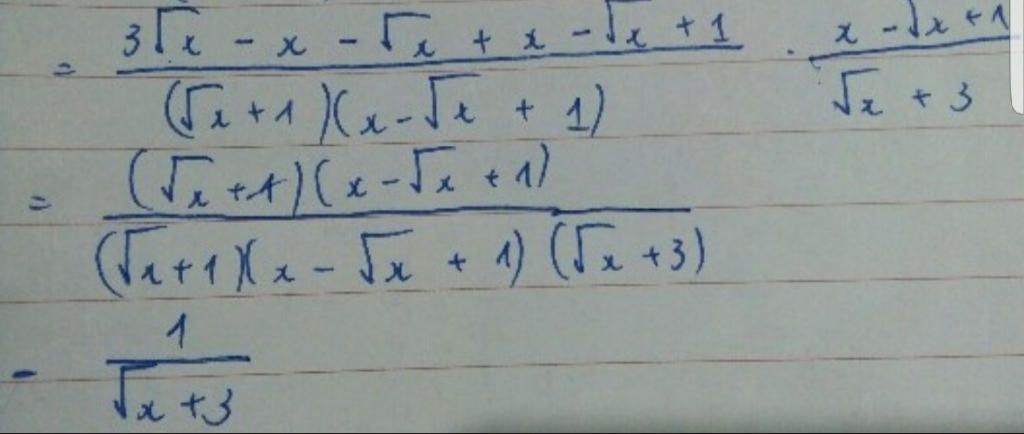 = (3√x - x - √x + x - √x + 1) / ((√x + 1)(x - √x + 1)) · (x - √x + 1) / (√x + 3)
= ((√x + 1)(x - √x + 1)) / ((√x + 1)(x - √x + 1)(√x + 3))
- 1 / (√x + 3)